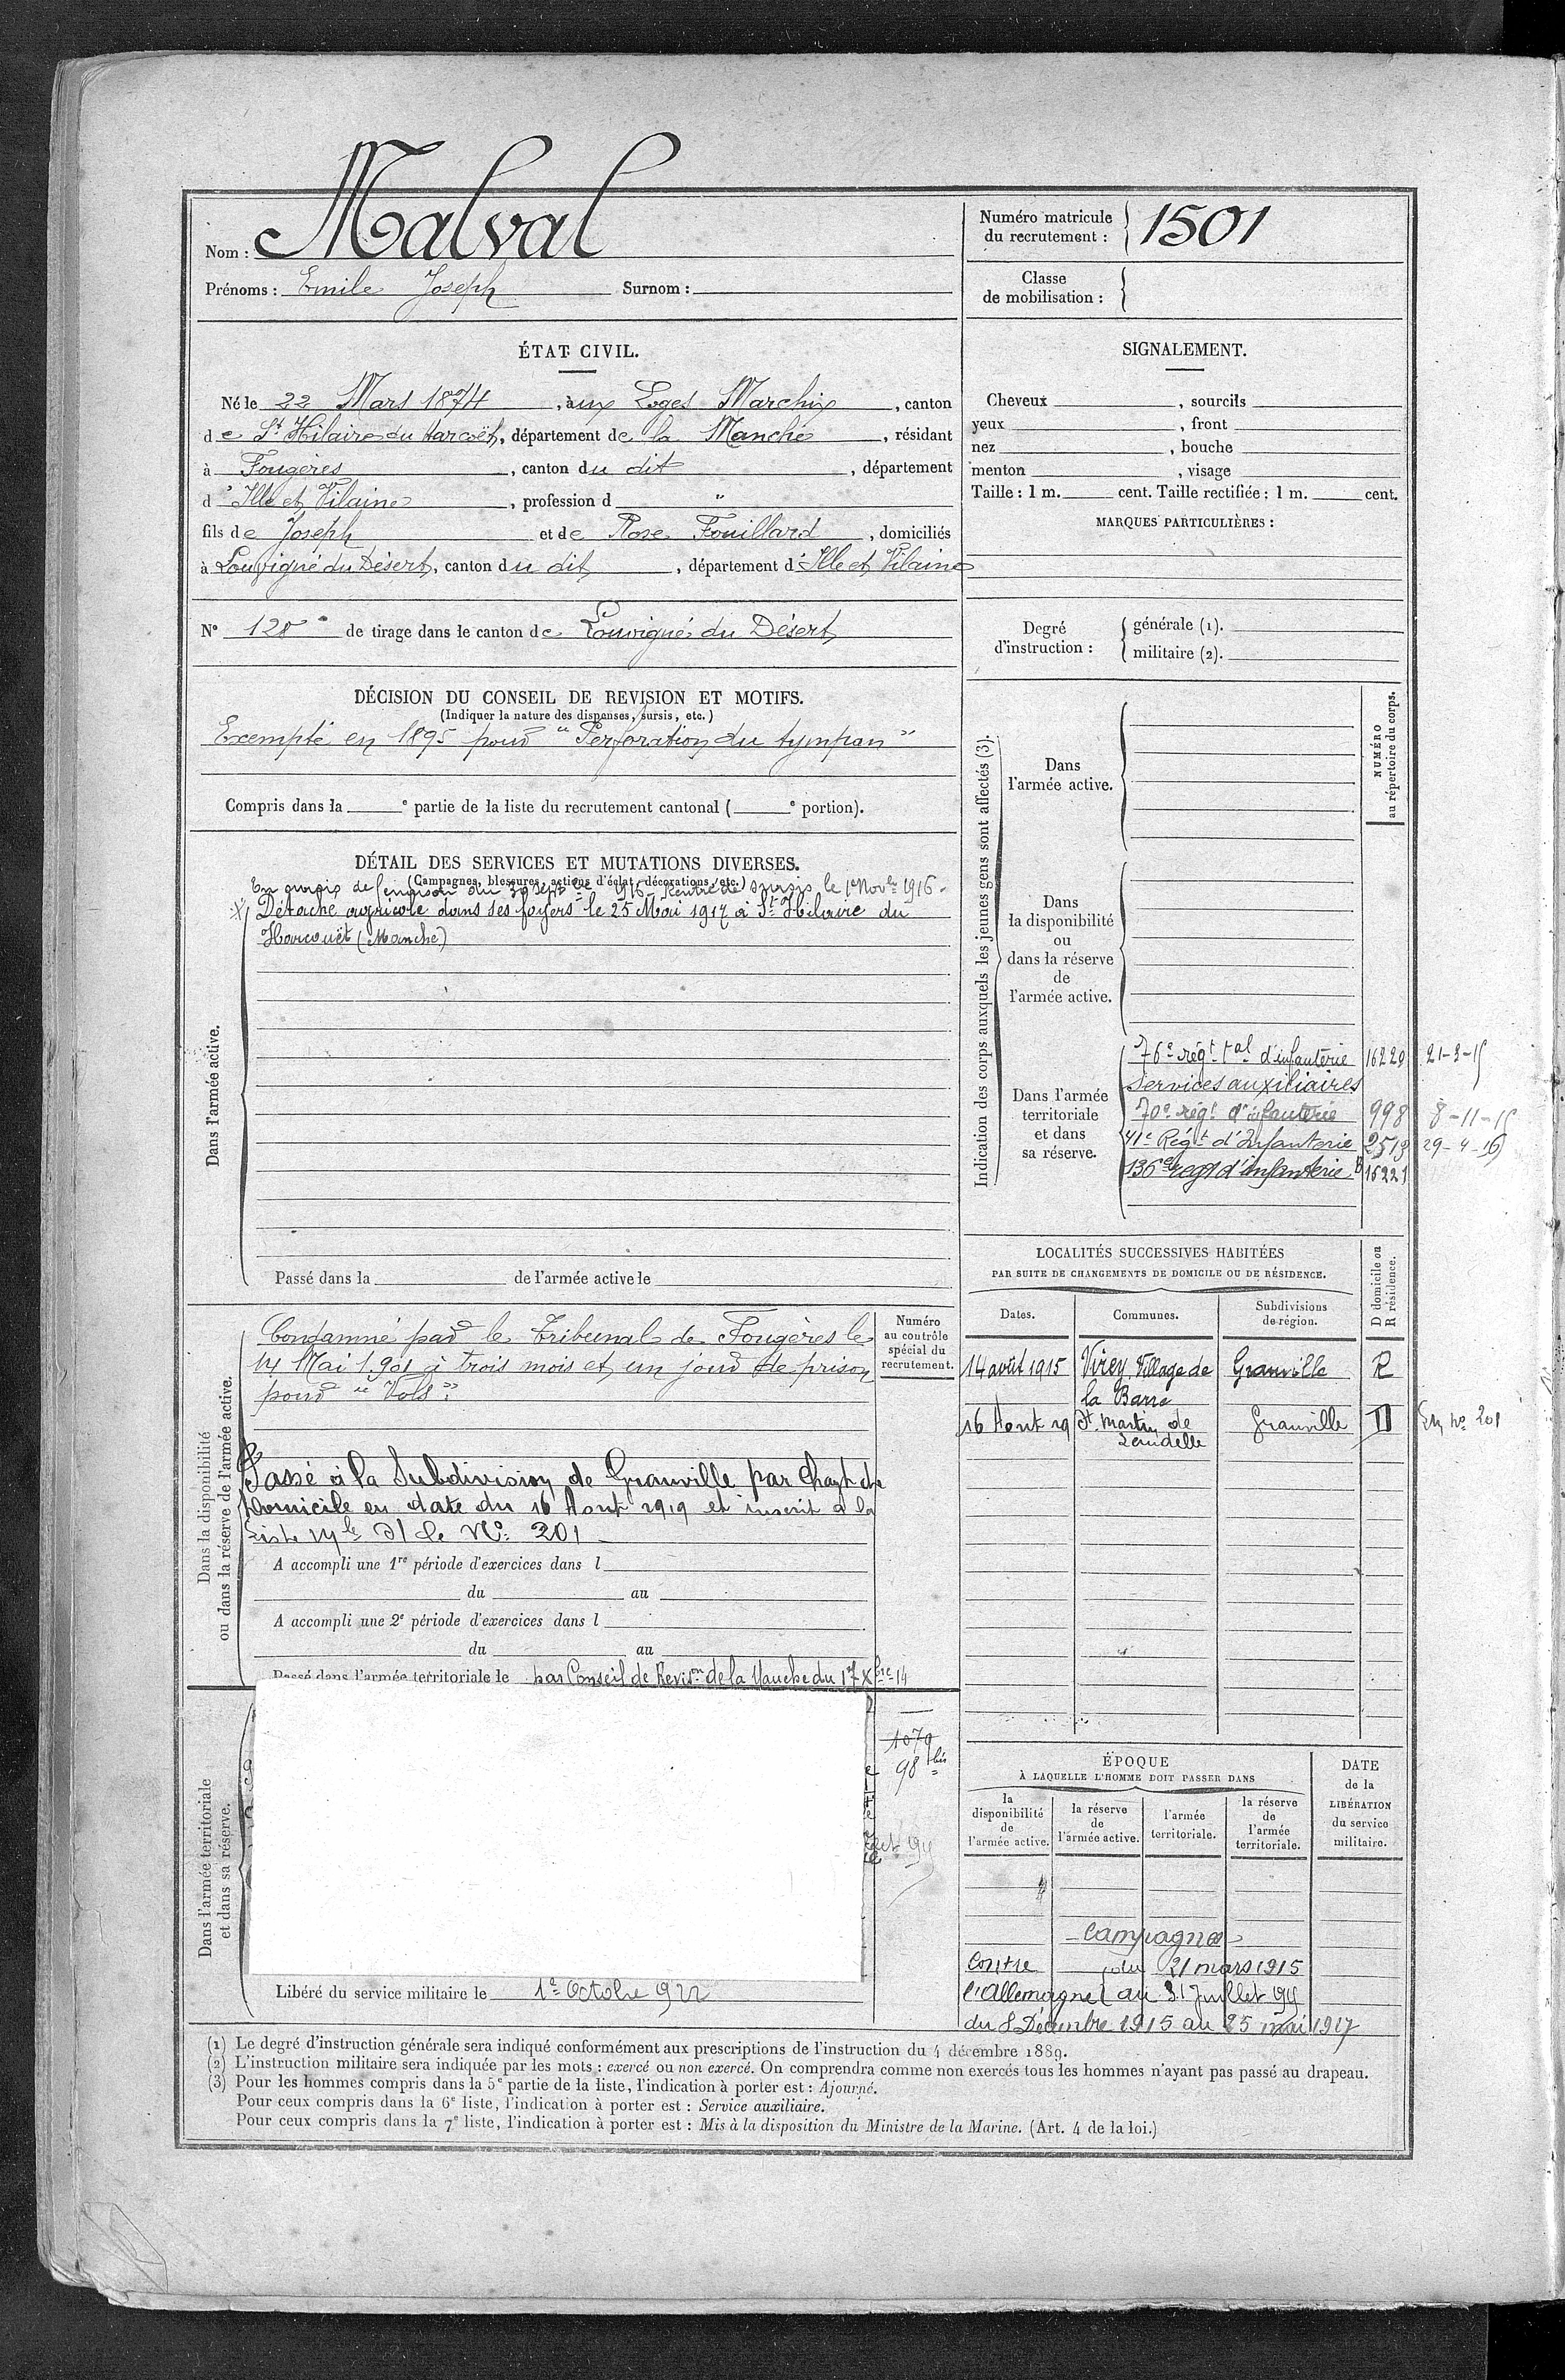 Nom : Malval
Prénoms : Emile Joseph Surnom :
ÉTAT CIVIL.
Né le 22 Mars 1874, aux Loges Marchix, canton
de St Hilaire du Harcoët, département de la Manche, résidant
à Fougères, canton du dit, département
d'Ille et Vilaine, profession d "
fils de Joseph et de Rose Fouillard, domiciliés
à Louvigné du Désert, canton du dit, département d'Ille et Vilaine
N° 128 de tirage dans le canton de Louvigné du Désert
DÉCISION DU CONSEIL DE REVISION ET MOTIFS.
(Indiquer la nature des dispenses, sursis, etc.)
Exempté en 1895 pour "Perforation du tympan"
Compris dans la e partie de la liste du recrutement cantonal ( e portion).
DÉTAIL DES SERVICES ET MUTATIONS DIVERSES.
(Campagnes, blessures, actions d'éclat, décorations, etc.)
En sursis de du 30 Septbre 1916 - Rentré de sursis le 1er Novbre 1916 -
Détaché agricole dans ses foyers le 25 Mai 1917 à St Hilaire du
Harcouët (Manche)
Dans l'armée active.
Passé dans la de l'armée active le
Condamné par le Tribunal de Fougères le
14 Mai 1901 à trois mois et un jour de prison
pour "Vols".
Passé à la Subdivision de Granville par Changt de
Domicile en date du 16 Aout 1919 et inscrit à la
liste Mle sr le No: 201 -
Dans la disponibilité
ou dans la réserve de l'armée active.
A accompli une 1re période d'exercices dans l
du au
A accompli une 2e période d'exercices dans l
du au
Passé dans l'armée territoriale le par Conseil de Revison de la Manche du 17 Xbre 14
Dans l'armée territoriale
et dans sa réserve.
Libéré du service militaire le 1er Octobre 1922
Numéro
au contrôle
spécial du
recrutement.
1070
98 bis
Numéro matricule
du recrutement : 1501
Classe
de mobilisation :
SIGNALEMENT.
Cheveux , sourcils
yeux , front
nez , bouche
menton , visage
Taille : 1 m. cent. Taille rectifiée : 1 m. cent.
MARQUES PARTICULIÈRES :
Degré
d'instruction :
générale (1).
militaire (2).
Indication des corps auxquels les jeunes gens sont affectés (3).
NUMÉRO
au répertoire du corps.
Dans
l'armée active.
Dans
la disponibilité
ou
dans la réserve
de
l'armée active.
Dans l'armée
territoriale
et dans
sa réserve.
76e régt tal d'infanterie 16220 21-3-15
Services auxiliaires
70e régt d'infanterie 998 8-11-15
41e Régt d'Infanterie 2513 29-4-16
136e regt d'infanterie 16221
LOCALITÉS SUCCESSIVES HABITÉES
PAR SUITE DE CHANGEMENTS DE DOMICILE OU DE RÉSIDENCE.
D domicile ou
R résidence.
Dates. Communes. Subdivisions
de région.
14 août 1915 Virey, Village de Granville R
la Barre
16 Aout 19 St Martin de Granville D No 201
Landelle
ÉPOQUE
À LAQUELLE L'HOMME DOIT PASSER DANS
la
disponibilité
de
l'armée active.
la réserve
de
l'armée active.
l'armée
territoriale.
la réserve
de
l'armée
territoriale.
DATE
de la
LIBÉRATION
du service
militaire.
Campagnes
Contre du 21 mars 1915
l'Allemagne au 31 Juillet 1915
du 8 Décembre 1915 au 25 mai 1917
(1) Le degré d'instruction générale sera indiqué conformément aux prescriptions de l'instruction du 4 décembre 1889.
(2) L'instruction militaire sera indiquée par les mots : exercé ou non exercé. On comprendra comme non exercés tous les hommes n'ayant pas passé au drapeau.
(3) Pour les hommes compris dans la 5e partie de la liste, l'indication à porter est : Ajourné.
Pour ceux compris dans la 6e liste, l'indication à porter est : Service auxiliaire.
Pour ceux compris dans la 7e liste, l'indication à porter est : Mis à la disposition du Ministre de la Marine. (Art. 4 de la loi.)